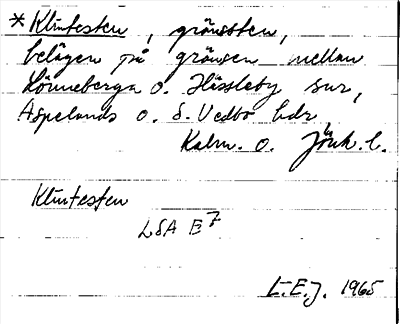 * Klintesten, gränssten,
belägen på gränsen mellan
Lönneberga o. Hässleby snr,
Aspelands o. S. Vedbo hdr
Kalm. o. Jönk. l.
Klintesten
LSA E7
L.E.J. 1965